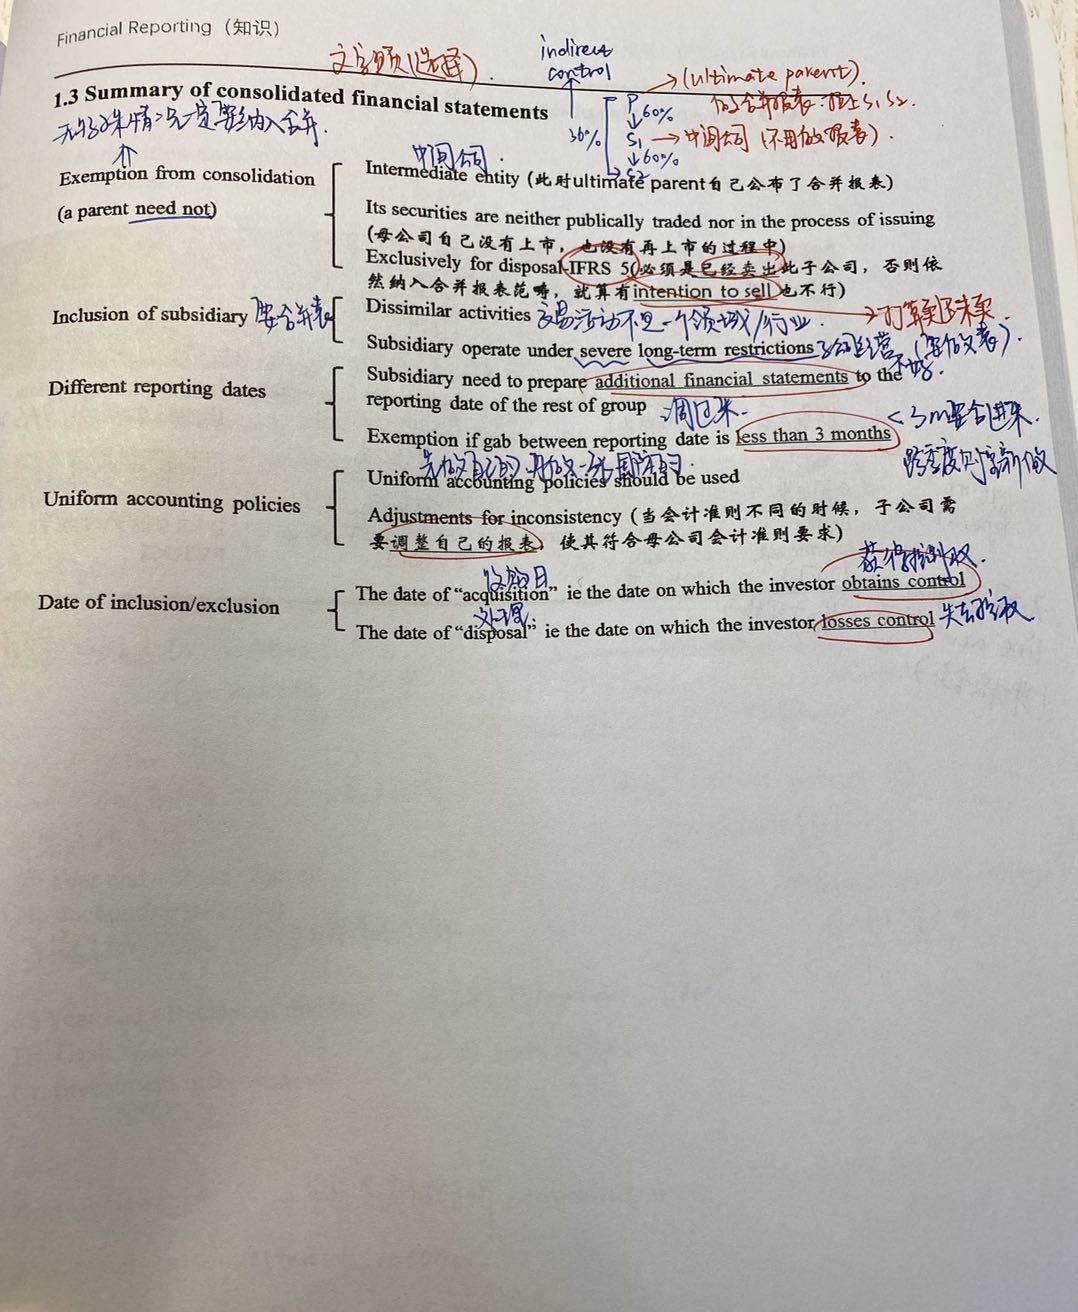 Financial Reporting（知识）
文字题(选择).
indirect
control
(ultimate parent).
1.3 Summary of consolidated financial statements
P
60%
36%
S1
中间公司（不用做报表）.
60%
S2
中间公司.
Exemption from consolidation
(a parent need not)
Intermediate entity (此时ultimate parent自己公布了合并报表)
Its securities are neither publically traded nor in the process of issuing
(母公司自己没有上市，也没有再上市的过程中)
Exclusively for disposal-IFRS 5(必须是已经卖出此子公司，否则依
然纳入合并报表范畴，就算有intention to sell也不行)
Inclusion of subsidiary
要合并表
Dissimilar activities
交易活动不是一个领域/行业.
打算卖还未卖
Subsidiary operate under severe long-term restrictions
(要做报表).
Different reporting dates
Subsidiary need to prepare additional financial statements to the
reporting date of the rest of group
Exemption if gab between reporting date is less than 3 months
Uniform accounting policies
Uniform accounting policies should be used
Adjustments for inconsistency (当会计准则不同的时候，子公司需
要调整自己的报表，使其符合母公司会计准则要求)
获得控制权.
Date of inclusion/exclusion
收购日
The date of “acquisition” ie the date on which the investor obtains control
处理
The date of “disposal” ie the date on which the investor losses control
失去控制权